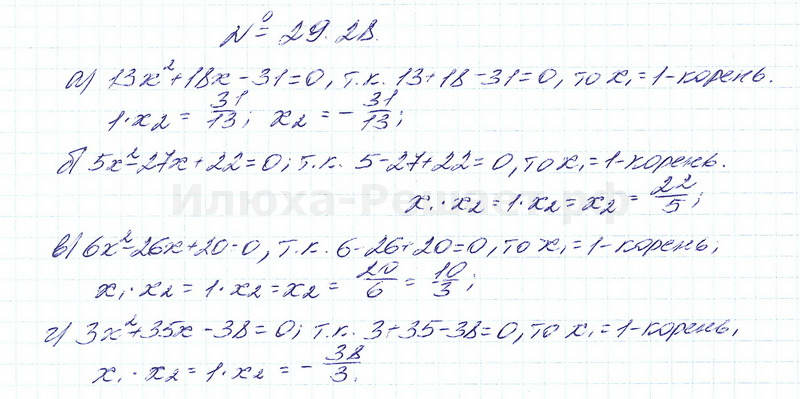 № 29.28.
а) 13x²+18x-31=0, т.к. 13+18-31=0, то x₁=1-корень.
1·x₂ = 31/13; x₂ = -31/13;
б) 5x²-27x+22=0; т.к. 5-27+22=0, то x₁=1-корень.
Илюха-Решает.рф
x₁·x₂=1·x₂=x₂= 22/5;
в) 6x²-26x+20-0, т.к. 6-26+20=0, то x₁=1-корень;
x₁·x₂=1·x₂=x₂= 20/6 = 10/3;
г) 3x²+35x-38=0; т.к. 3+35-38=0, то x₁=1-корень,
x₁·x₂=1·x₂ = -38/3.